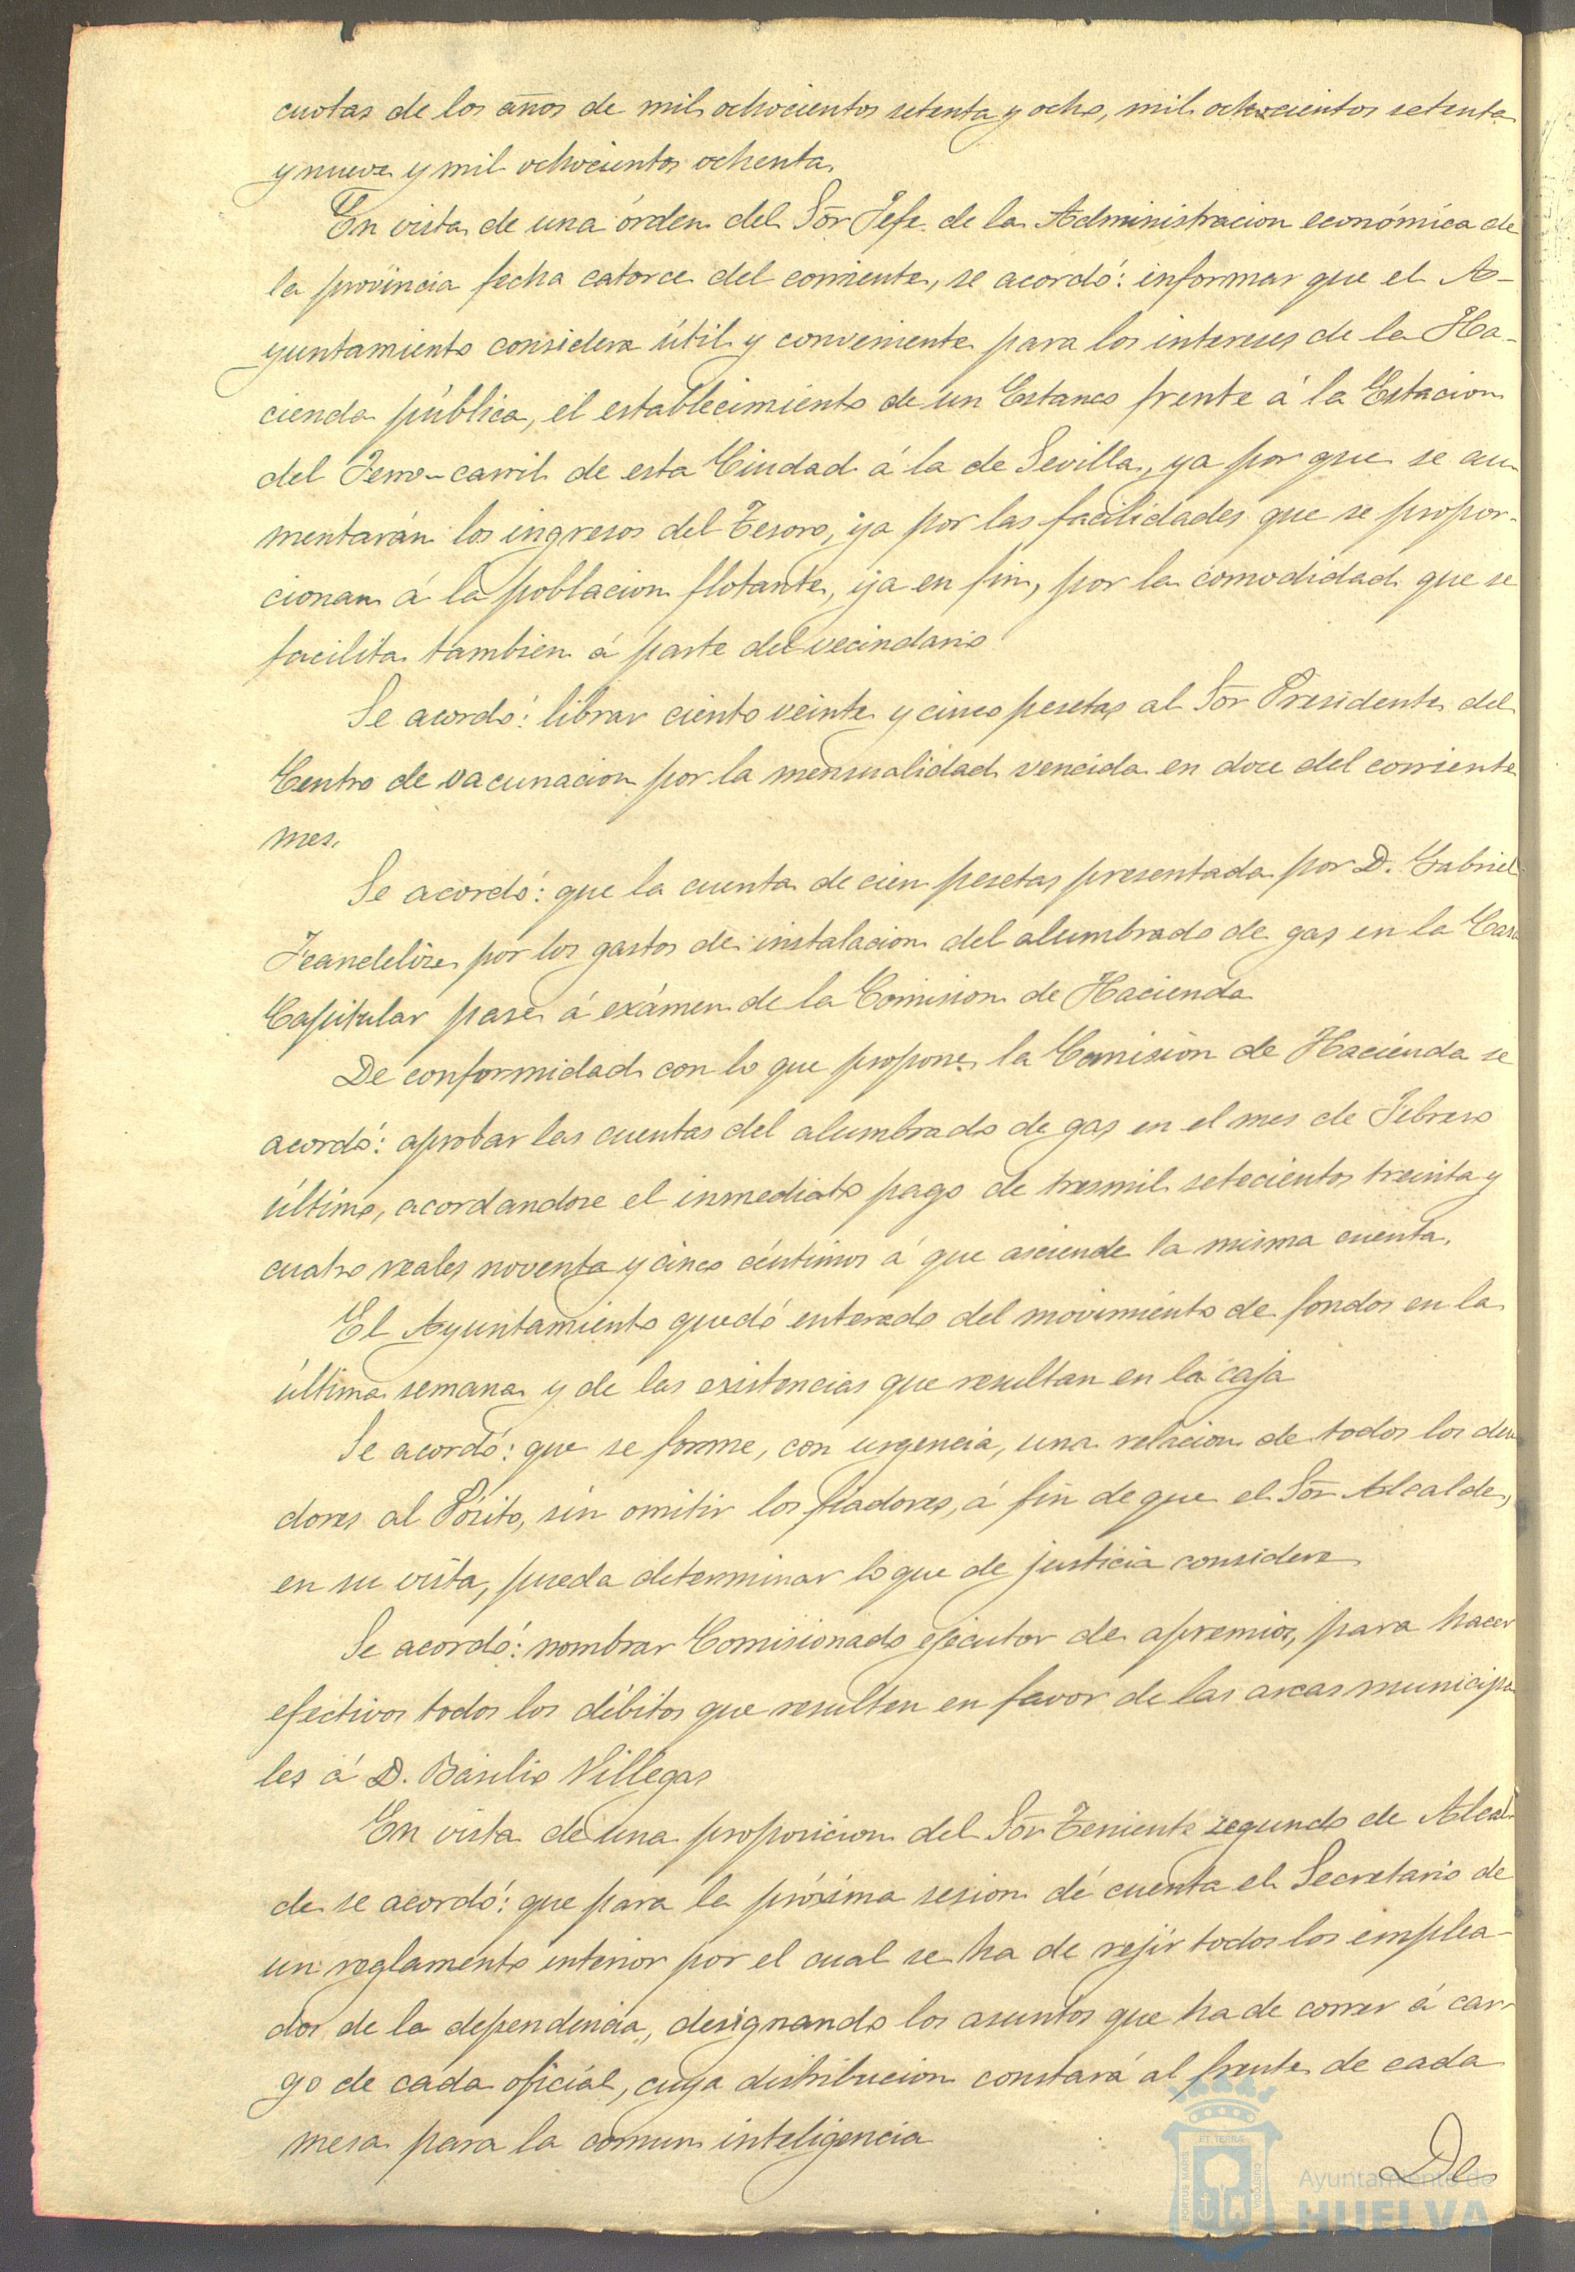 cuotas de los años de mil ochocientos setenta y ocho, mil ochocientos setenta
y nueve y mil ochocientos ochenta.
En vista de una órden del Sõr Jefe de la Administracion económica de
la provincia fecha catorce del corriente, se acordó: informar que el A-
yuntamiento considera útil y conveniente para los intereses de la Ha-
cienda pública, el establecimiento de un Estanco frente á la Estacion
del Ferro-carril de esta Ciudad á la de Sevilla, ya por que se au-
mentarán los ingresos del Tesoro, ya por las facilidades que se propor-
cionan á la poblacion flotante, ya en fin, por la comodidad que se
facilita tambien á parte del vecindario
Se acordó: librar ciento veinte y cinco pesetas al Sõr Presidente del
Centro de vacunacion por la mensualidad vencida en doce del corriente
mes.
Se acordó: que la cuenta de cien pesetas presentada por D. Gabriel
Jeandelize por los gastos de instalacion del alumbrado de gas en la Casa
Capitular pase á exámen de la Comision de Hacienda
De conformidad con lo que propone la Comision de Hacienda se
acordó: aprobar las cuentas del alumbrado de gas en el mes de Febrero
último, acordandose el inmediato pago de tresmil setecientos treinta y
cuatro reales noventa y cinco céntimos á que asciende la misma cuenta.
El Ayuntamiento quedó enterado del movimiento de fondos en la
última semana y de las existencias que resultan en la caja
Se acordó: que se forme, con urgencia, una relacion de todos los deu
dores al Pósito, sin omitir los fiadores, á fin de que el Sõr Alcalde,
en su vista, pueda determinar lo que de justicia considere
Se acordó: nombrar Comisionado ejecutor de apremios, para hacer
efectivos todos los débitos que resulten en favor de las arcas municipa
les á D. Basilio Villegas
En vista de una proposicion del Sõr Teniente segundo de Alcal-
de se acordó: que para la próxima sesion dé cuenta el Secretario de
un reglamento interior por el cual se ha de rejir todos los emplea-
dos de la dependencia, designando los asuntos que ha de correr á car-
go de cada oficial, cuya distribucion constará al frente de cada
mesa para la comun inteligencia
De
Ayuntamiento de
HUELVA